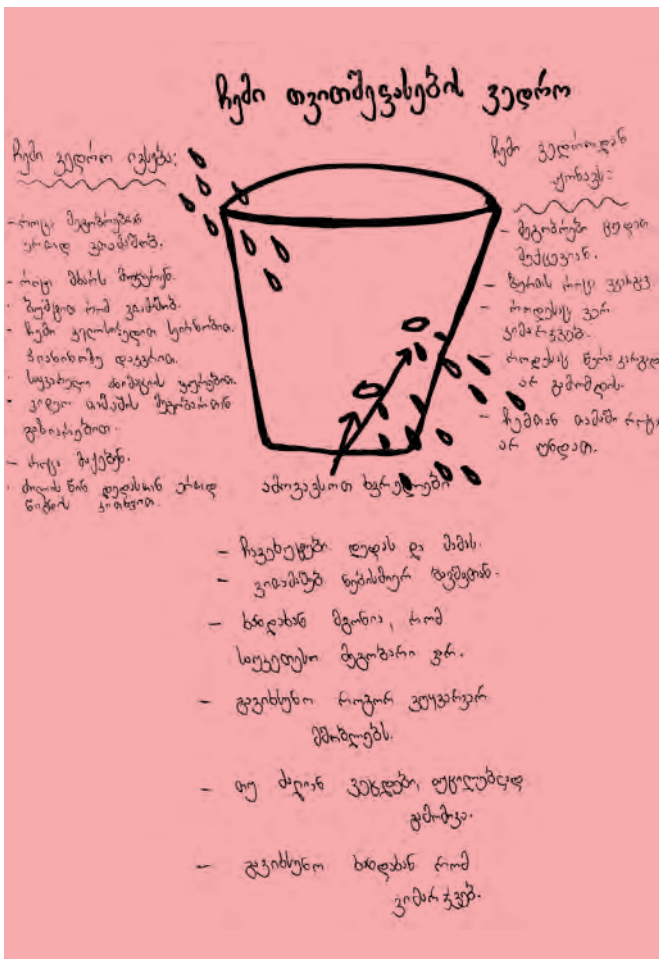 ჩემი თვითშეფასების ვედრო
ჩემი ვედრო ივსება:
- როცა მეგობრებთან
ერთად ვთამაშობ.
- როცა მხარს მიჭერენ.
- ბუშტით რომ ვთამშობ.
- ჩემი ველოსიპედით სეირნობით.
პიანინოზე დაკვრით.
- საყვარელი ანიმაციის ყურებით.
- ვიდეო თამაშის მეგობართან
გაზიარებით.
- როცა მაქებენ.
- ძილის წინ დედასთან ერთად
წიგნის კითხვით.
ჩემი ვედროდან
ჟონავს:
- მეგობრები ცუდად
მექცევიან.
- ბურთს როცა ვკარგავ
- როდესაც ვერ
ვიმარჯვებ.
- როდესაც წერა კარგად
არ გამომდის.
- ჩემთან თამაში როცა
არ უნდათ.
ამოვავსოთ ხვრელები
- ჩავეხუტები დედას და მამას.
- ვითამაშებ ნებისმიერ ბავშვთან.
- ხანდახან მგონია, რომ
საუკეთესო მეგობარი ვარ.
- გავიხსენო როგორ ვუყვარვარ
მშობლებს.
- თუ ძალიან ვეცდები, აუცილებლად
გამომივა.
- გავიხსენო ხანდახან რომ
ვიმარჯვებ.